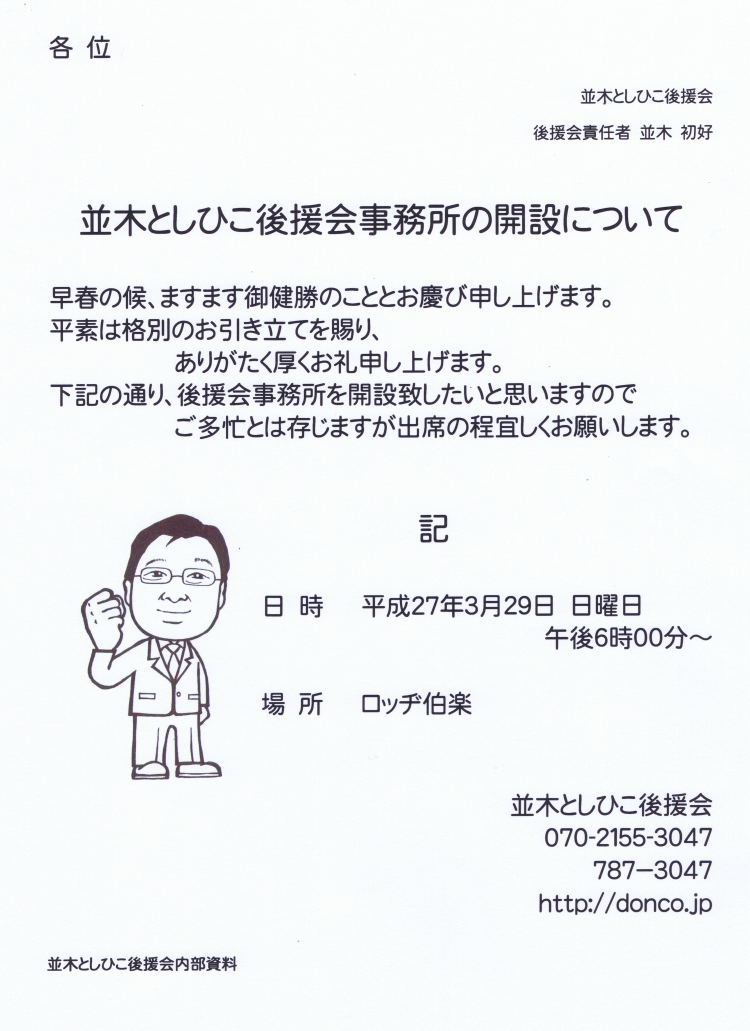 各 位
並木としひこ後援会
後援会責任者 並木 初好
並木としひこ後援会事務所の開設について
早春の候、ますます御健勝のこととお慶び申し上げます。
平素は格別のお引き立てを賜り、
ありがたく厚くお礼申し上げます。
下記の通り、後援会事務所を開設致したいと思いますので
ご多忙とは存じますが出席の程宜しくお願いします。
記
日 時 平成27年3月29日 日曜日
午後6時00分～
場 所 ロッヂ伯楽
並木としひこ後援会
070-2155-3047
787－3047
http://donco.jp
並木としひこ後援会内部資料